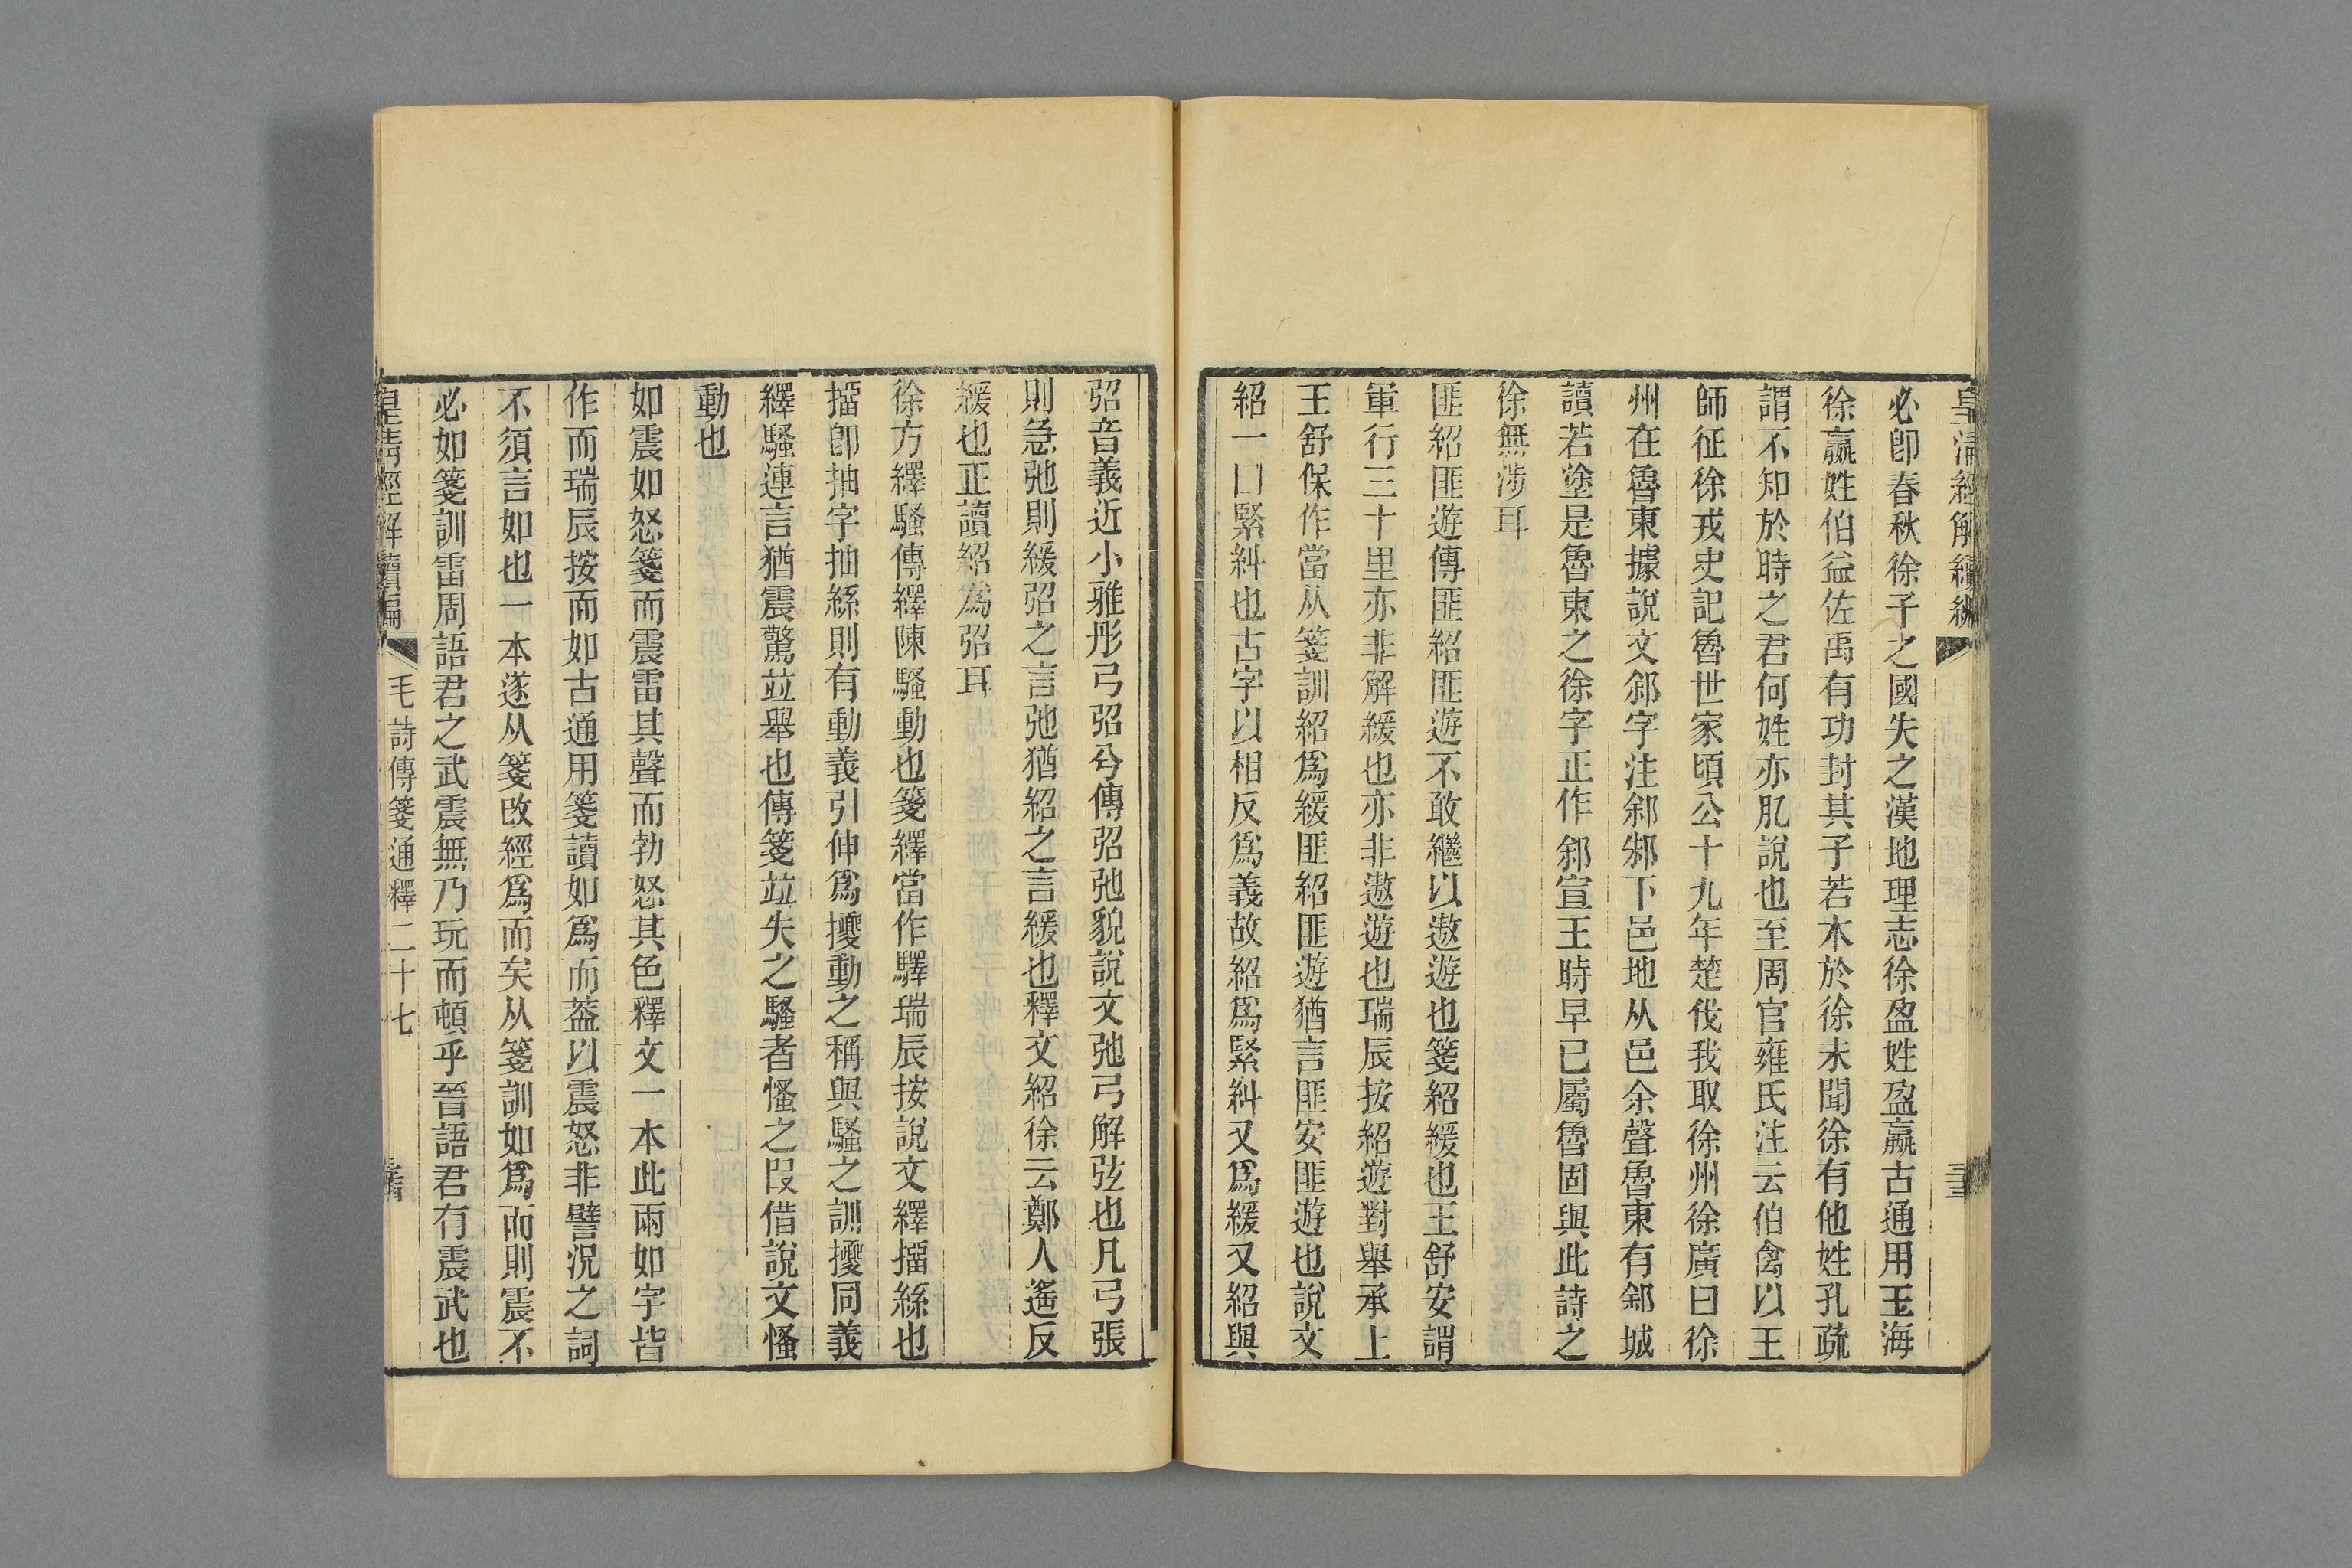 皇清經解續編
必卽春秋徐子之國失之漢地理志徐盈姓盈嬴古通用玉海
徐嬴姓伯益佐禹有功封其子若木於徐未聞徐有他姓孔疏
謂不知於時之君何姓亦肊說也至周官雍氏注云伯禽以王
師征徐戎史記魯世家頃公十九年楚伐我取徐州徐廣曰徐
州在魯東據說文䣄字注䣄邾下邑地从邑余聲魯東有䣄城
讀若塗是魯東之徐字正作䣄宣王時早已屬魯固與此詩之
徐無涉耳
匪紹匪遊傳匪紹匪遊不敢繼以遨遊也箋紹緩也王舒安謂
軍行三十里亦非解緩也亦非遨遊也瑞辰按紹遊對舉承上
王舒保作當从箋訓紹爲緩匪紹匪遊猶言匪安匪遊也說文
紹一曰緊糾也古字以相反爲義故紹爲緊糾又爲緩又紹與
弨音義近小雅彤弓弨兮傳弨弛貌說文弛弓解弦也凡弓張
則急弛則緩弨之言弛猶紹之言緩也釋文紹徐云鄭人遙反
緩也正讀紹爲弨耳
徐方繹騷傳繹陳騷動也箋繹當作驛瑞辰按說文繹擂絲也
擂卽抽字抽絲則有動義引伸爲擾動之稱與騷之訓擾同義
繹騷連言猶震驚竝舉也傳箋竝失之騷者慅之叚借說文慅
動也
如震如怒箋而震雷其聲而勃怒其色釋文一本此兩如字皆
作而瑞辰按而如古通用箋讀如爲而葢以震怒非譬況之詞
不須言如也一本遂从箋改經爲而矣从箋訓如爲而則震不
必如箋訓雷周語君之武震無乃玩而頓乎晉語君有震武也
皇清經解續編
毛詩傳箋通釋二十七